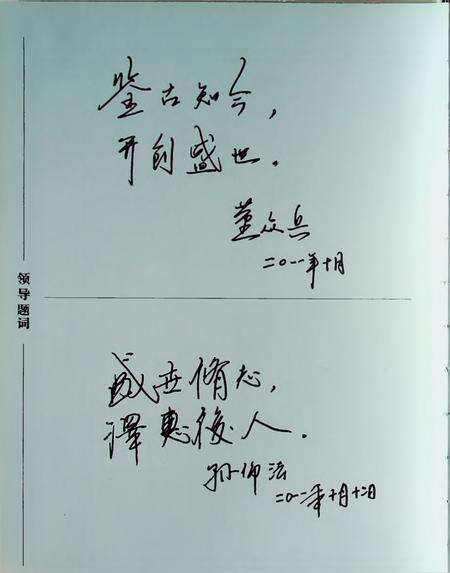 鉴古知今，
开创盛世。
董众兵
二〇一一年十月
领导题词
盛世脩志，
澤惠後人．
孙仰法
二〇一一年十月十二日